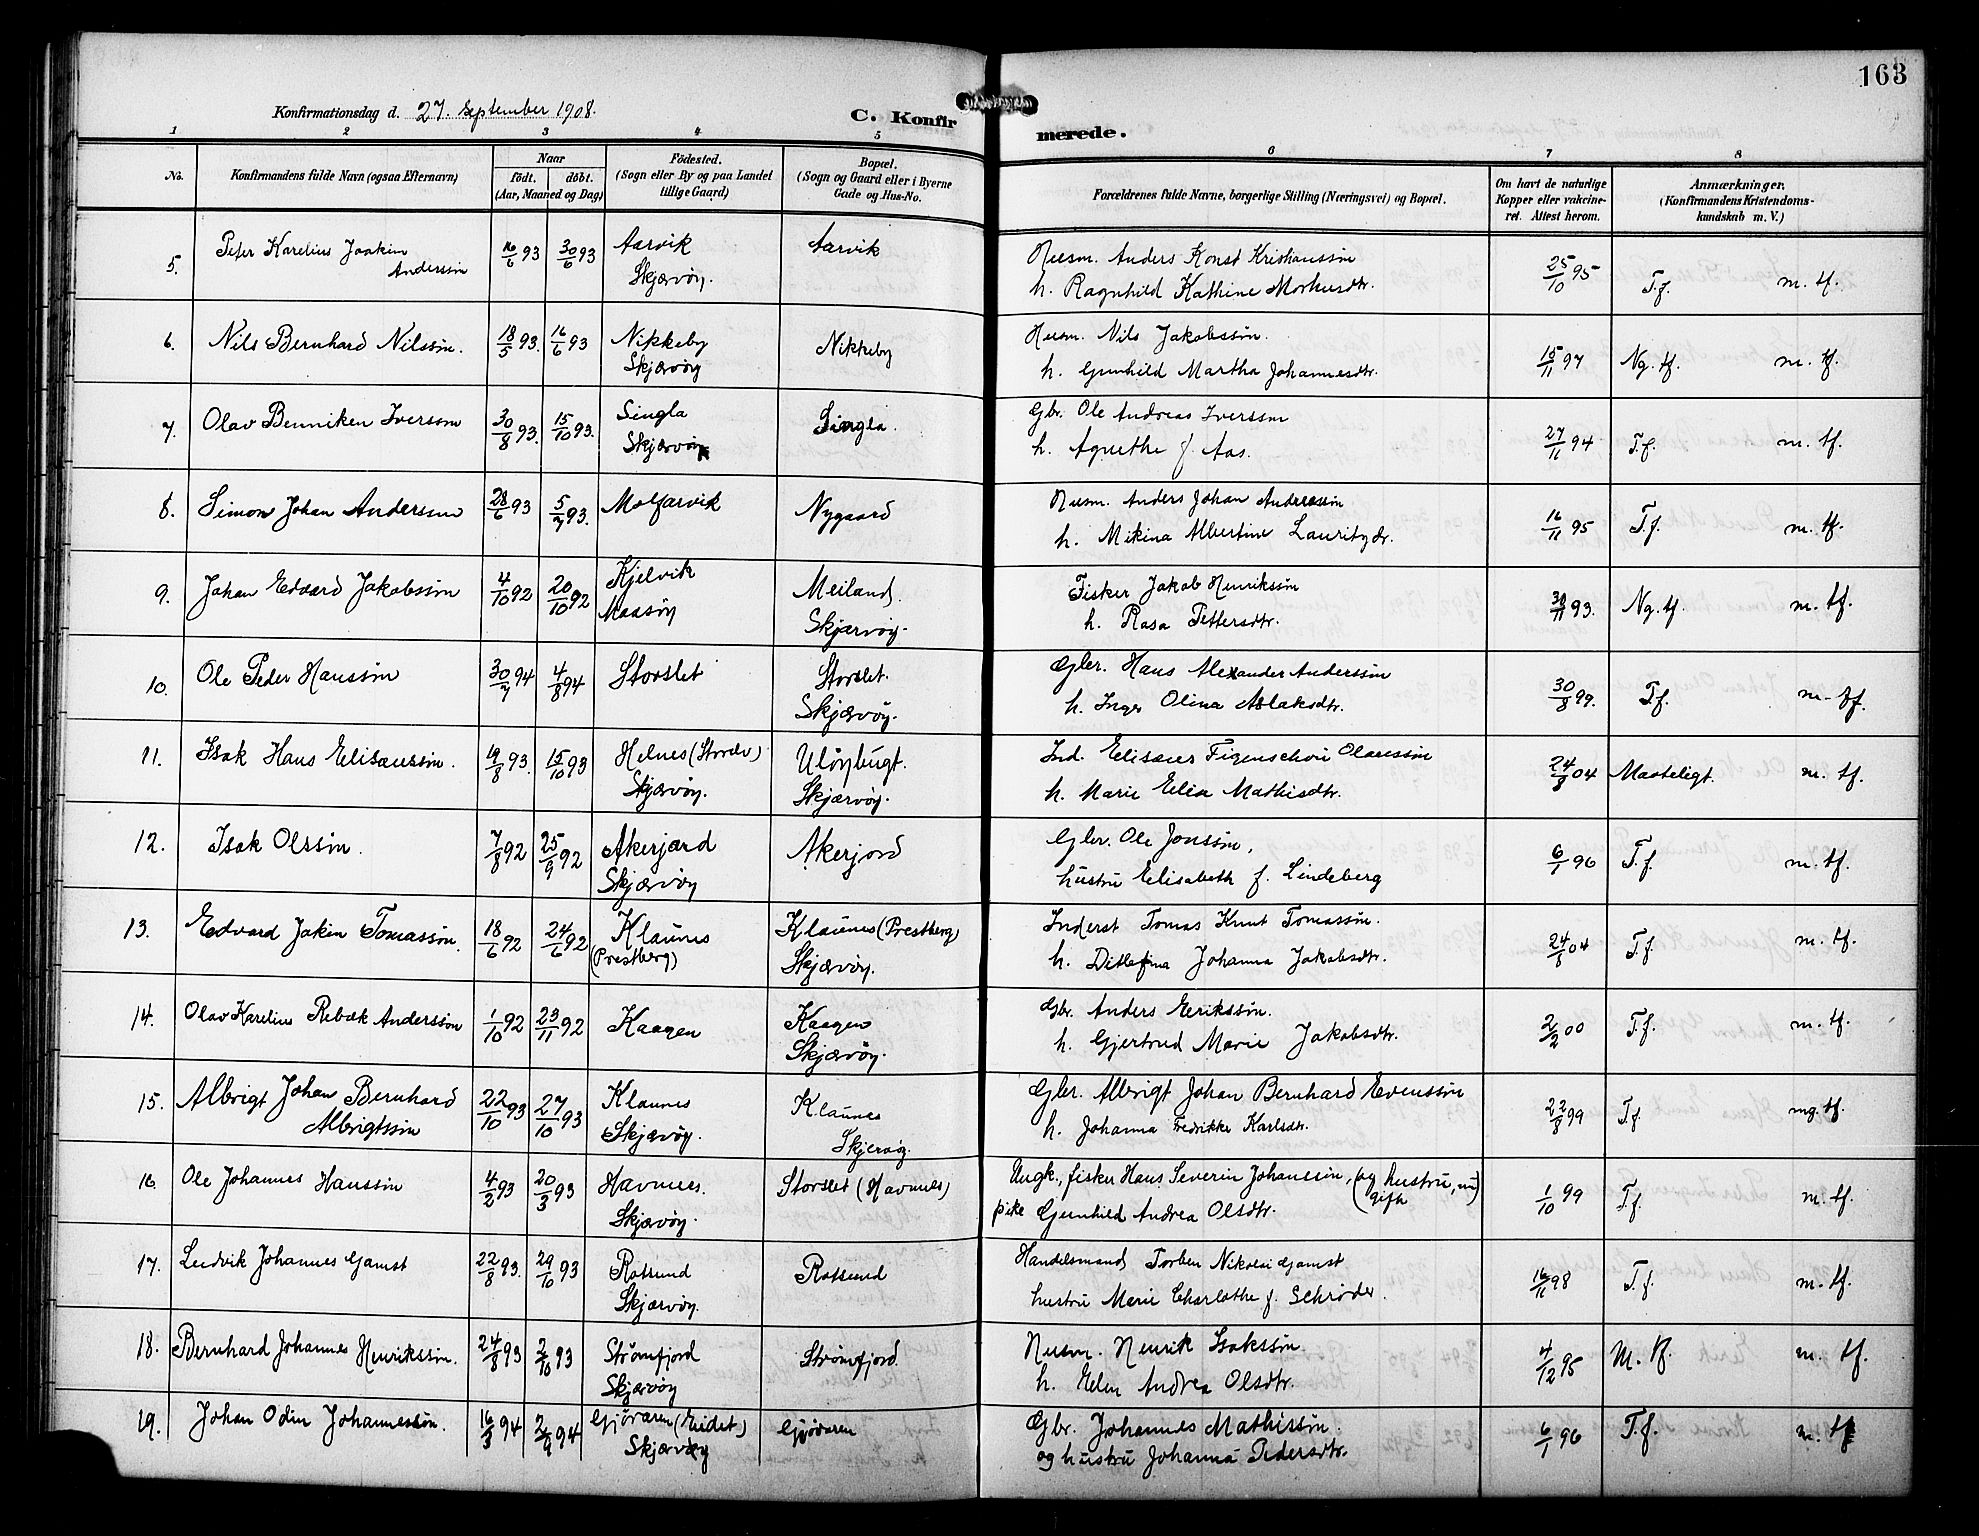 163
Konfirmationsdag d. 27. September 1908.
C. Konfirmerede.
1 2 3 4 5 6 7 8
No.
Konfirmandens fulde Navn (ogsaa Efternavn)
Naar
födt. döbt.
(Aar, Maaned og Dag)
Födested.
(Sogn eller By og paa Landet
tillige Gaard)
Bopæl.
(Sogn og Gaard eller i Byerne
Gade og Hus-No.
Forældrenes fulde Navne, borgerlige Stilling (Næringsvei) og Bopæl.
Om havt de naturlige
Kopper eller vakcine-
ret. Attest herom.
Anmærkninger.
(Konfirmandens Kristendoms-
kundskab m. V.)
5. Peter Karelius Joakim 16/6 93 30/6 93 Aarvik Aarvik Husm. Anders Konst Kristianssøn 25/10 95 T.f. m. tf.
Anderssøn Skjærvöy. h. Ragnhild Kathine Morkusdtr.
6. Nils Bernhard Nilssøn. 18/5 93. 16/6 93 Nikkeby Nikkeby Husm. Nils Jakobssøn. 15/11 97 Ng. tf. m. tf.
Skjærvöy h. Gunhild Martha Johannesdtr.
7. Olav Benniken Iverssøn 30/8 93. 15/10 93. Singla Singla. Gbr. Ole Andreas Iverssøn 27/11 94 T.f. m. tf.
Skjærvöy h. Agnethe f. Aas.
8. Simon Johan Anderssøn 28/6 93 5/7 93. Molfarvik Nygaard Husm. Anders Johan Andreassøn 16/11 95 T.f. m. tf.
h. Mikina Albertine Lauritzdr.
9. Johan Edvard Jakobssøn 4/10 92 20/10 92 Kjelvik Meiland. Fisker Jakob Henrikssøn 30/11 93. Ng. tf. m. tf.
Maasöy Skjærvöy. h. Rasa Pettersdtr.
10. Ole Peder Hanssøn 30/7 94 4/8 94 Storslet Storslet. Gbr. Hans Alexander Anderssøn 30/8 99. T.f. m. tf.
Skjærvöy. h. Inger Olina Aslaksdtr.
11. Isak Hans Elisæussøn. 19/8 93. 15/10 93 Helnes (Storelv) Ulöybugt. Ind. Elisæus Figenschou Olaussøn 24/8 04 Maateligt. m. tf.
Skjærvöy. Skjærvöy. h. Marie Elisa Mathisdtr.
12. Isak Olssøn. 7/8 92 25/9 92 Akerjord Akerjord Gbr. Ole Jonssøn, 6/1 96 T.f. m. tf.
Skjærvöy hustru Elisabeth f. Lindeberg
13. Edvard Jakin Tomassøn. 18/6 92 24/6 92 Klaunes Klaunes (Prestberg) Inderst Tomas Knut Tomassøn. 24/8 04 T.f. m. tf.
(Prestberg) Skjærvöy. h. Ditlefina Johanna Jakobsdtr.
14. Olav Karelius Rebæk Anderssøn 1/10 92 23/11 92 Kaagen Kaagen Gbr. Anders Erikssøn. 2/2 00 T.f. m. tf.
Skjærvöy. h. Gjertrud Marie Jakobsdtr.
15. Albrigt Johan Bernhard 22/10 93 27/10 93 Klaunes Klaunes Gbr. Albrigt Johan Bernhard Evenssøn 22/8 99 T.f. mg. tf.
Albrigtssøn Skjærvöy. Skjervöy. h. Johanna Fredrikke Karlsdtr.
16. Ole Johannes Hanssøn 4/2 93 20/3 93 Havnnes. Storslet (Havnnes) Ungk., fisker Hans Severin Johanssøn, (og hustru, nu 1/10 99 T.f. m. tf.
Skjærvöy. pike Gunhild Andrea Olsdtr. gift)
17. Ludvik Johannes Gamst 22/8 93. 29/10 93 Rotsund Rotsund Handelsmand Torben Nikolai Gamst 16/11 98 T.f. m. tf.
Skjærvöy. hustru Marie Charlotte f. Schrøder.
18. Bernhard Johannes Henrikssøn. 24/8 93 2/10 93 Strømfjord Strømfjord. Husm. Henrik Isakssøn. 4/12 95 M. tf. m. tf.
Skjærvöy h. Elen Andrea Olsdtr.
19. Johan Odin Johannessøn. 16/3 94 2/9 94 Gjøvaren (Eidet) Gjøvaren Gbr. Johannes Mathissøn. 6/1 96 T.f. m. tf.
Skjærvöy og hustru Johanna Pedersdtr.